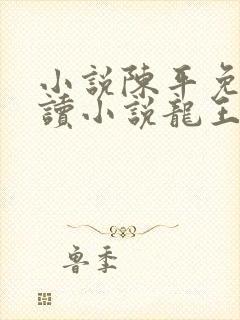 小說陳平免
讀小說龍王
魯季